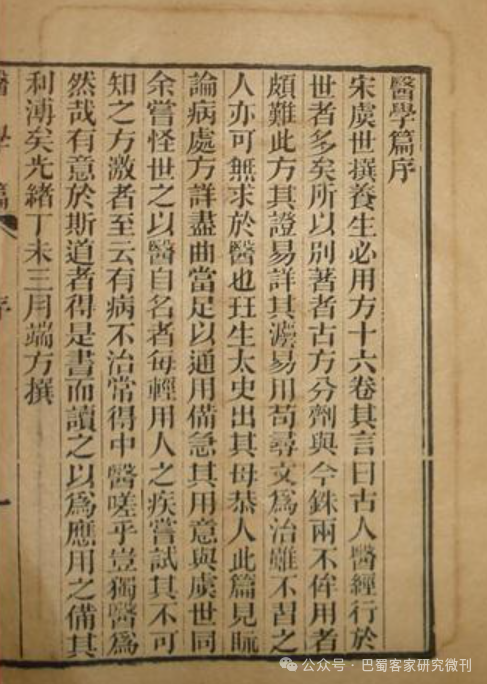 醫學篇序
宋虞世撰養生必用方十六卷其言曰古人醫經行於
世者多矣所以別著者古方分劑與今銖兩不侔用者
頗難此方其證易詳其灋易用苟尋文爲治雖不習之
人亦可無求於醫也玨生太史出其母恭人此篇見眎
論病處方詳盡曲當足以通用備急其用意與虞世同
余嘗怪世之以醫自名者每輕用人之疾嘗試其不可
知之方激者至云有病不治常得中醫嗟乎豈獨醫爲
然哉有意於斯道者得是書而讀之以爲應用之備其
利溥矣光緒丁未三月端方撰
醫學篇 序 一
公众号 · 巴蜀客家研究微刊